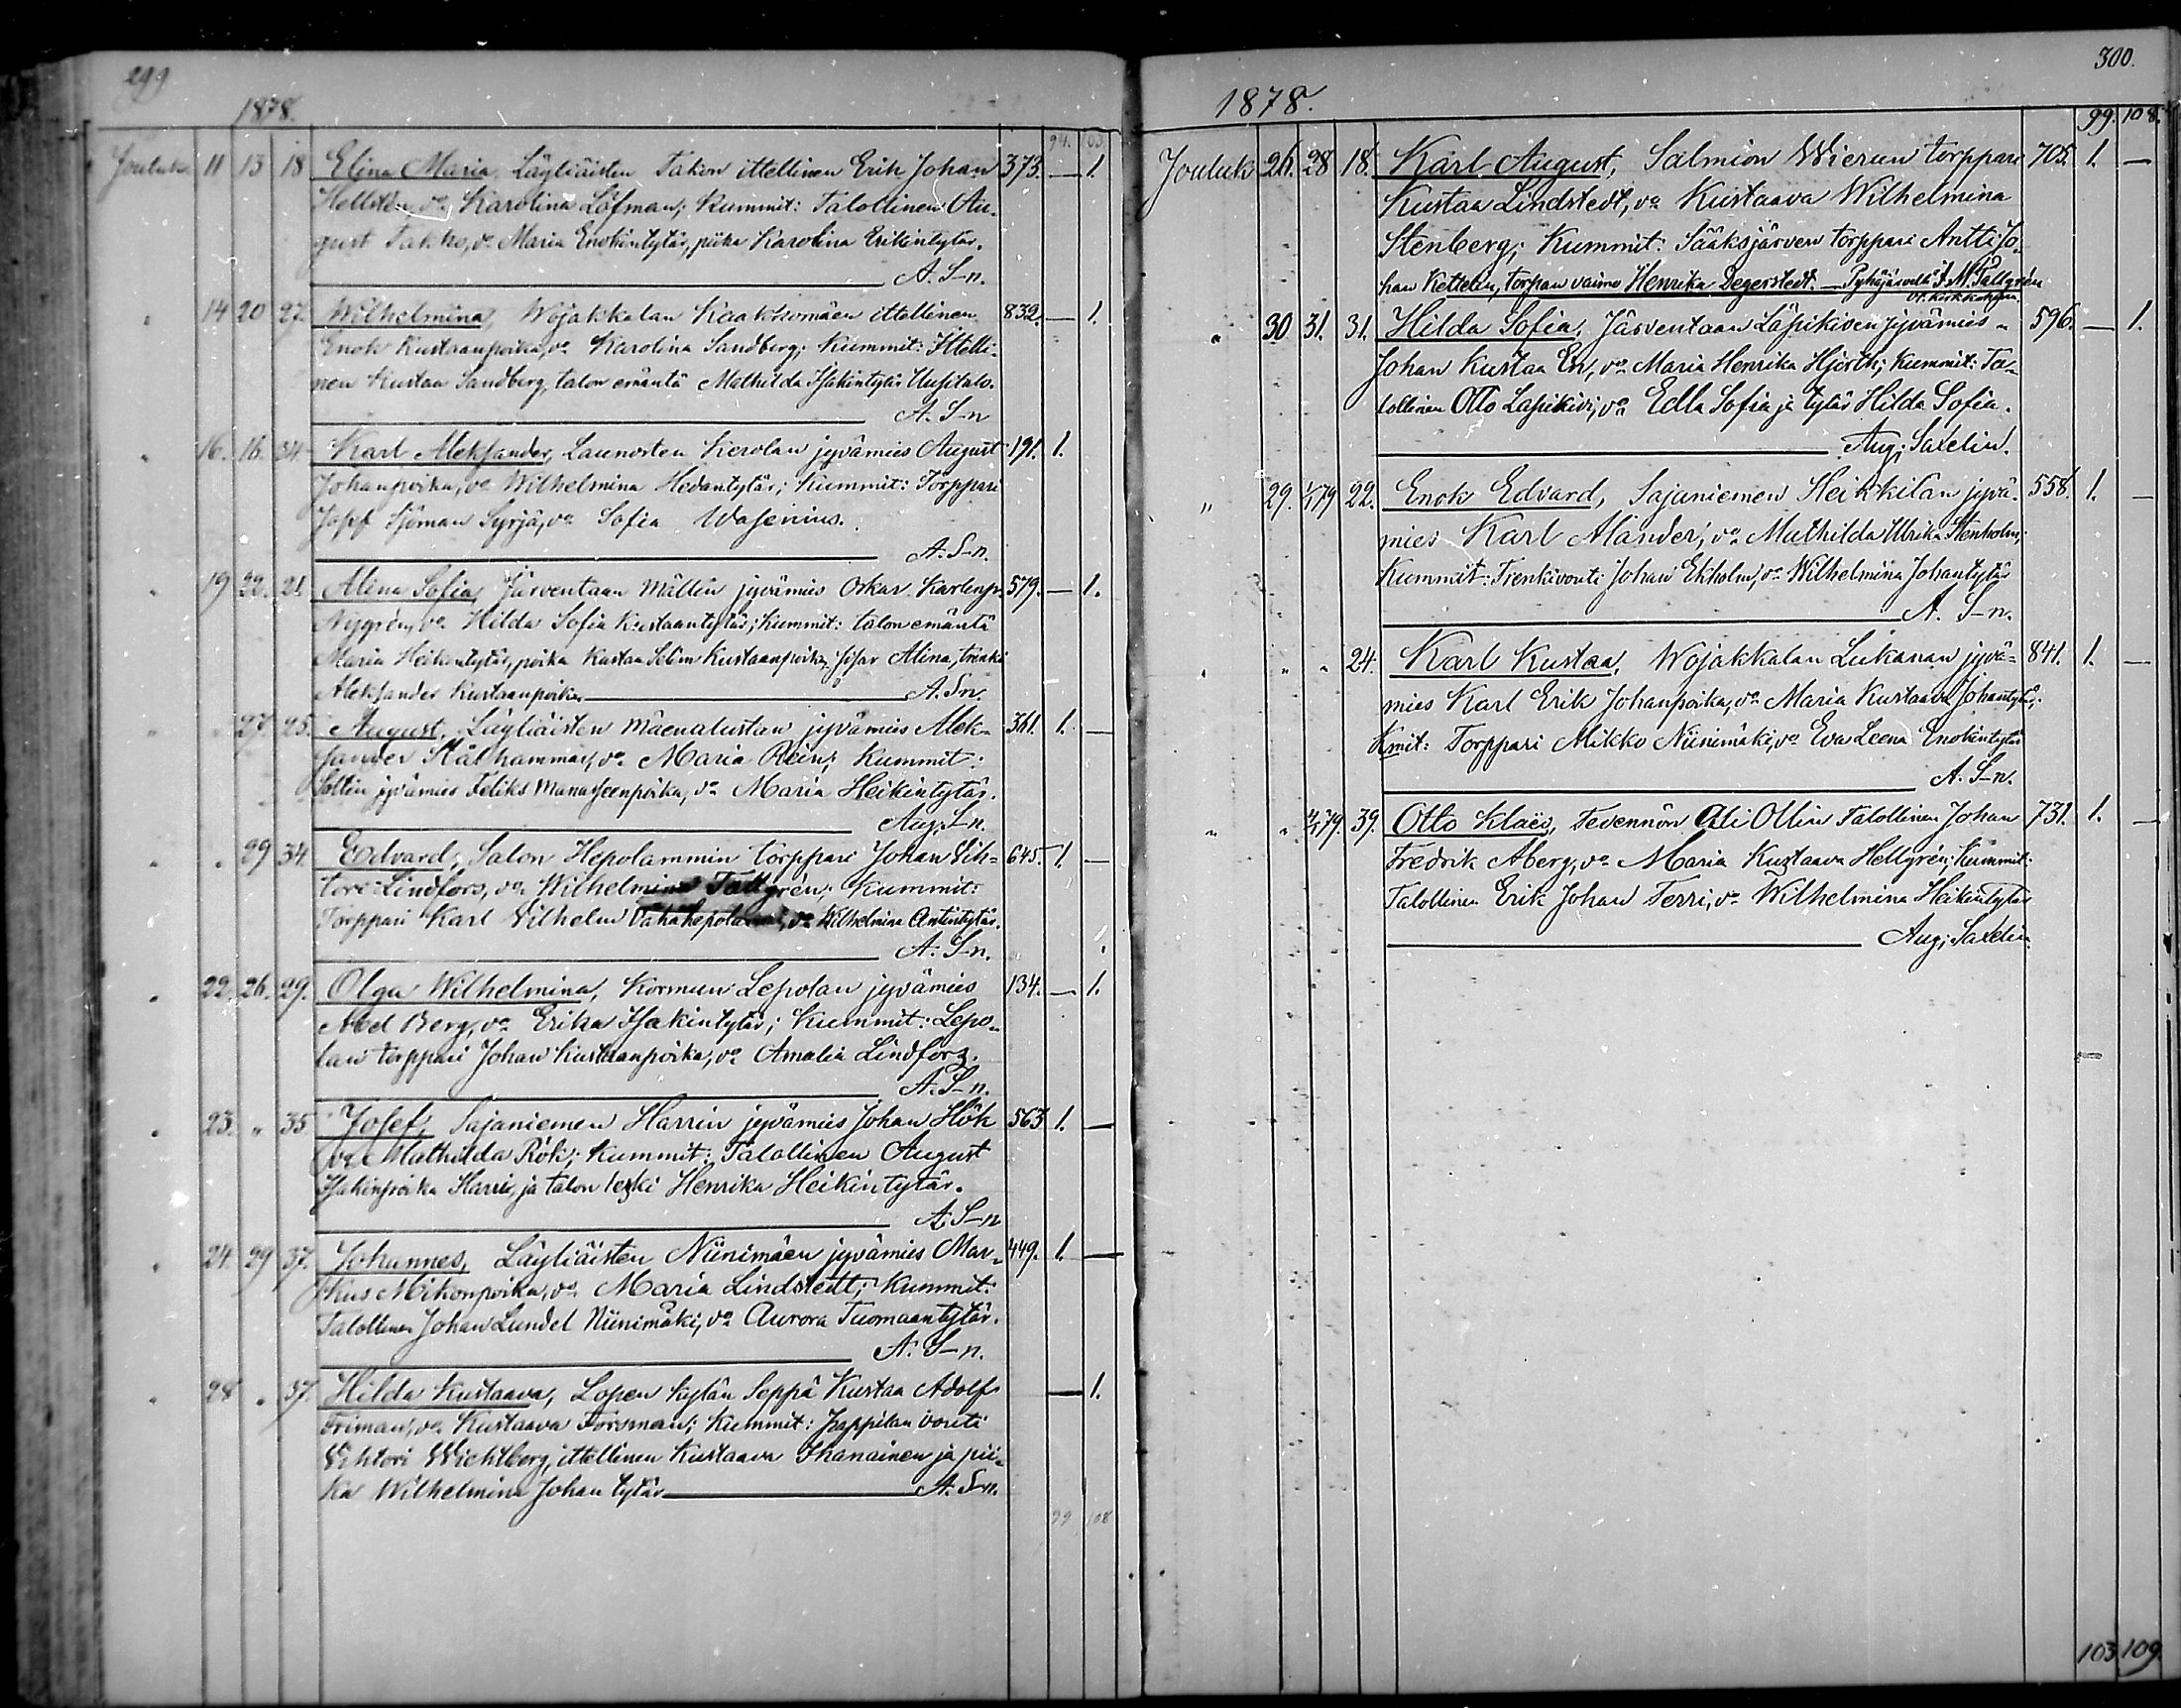 299
1878.
94. 103
Jouluk. 11 13 18 Elina Maria, Läyliäisten Takon ittellinen Erik Johan 373. — 1.
Hellstén, vo Karolina Löfman; Kummit: Talollinen Au-
gust Takko, vo Maria Enokintytär, piika Karolina Erikintytär.
A. S-n.
" 14 20 27. Wilhelmina, Wojakkalan Kaakkomäen ittellinen 832. — 1.
Enok Kustaanpoika, vo Karolina Sandberg; Kummit: Ittelli-
nen Kustaa Sandberg, talon emäntä Mathilda Isakintytär Uusitalo.
A. S-n
" 16. 18. 34 Karl Aleksander, Launosten Kerolan jyvämies August 191. 1.
Johanpoika, vo Wilhelmina Hedantytär; Kummit: Torppari
Josef Sjöman Syrjä, vo Sofia Wasenius.
A. S-n.
" 19 22. 21 Alina Sofia, Järventaan Mällin jyvämies Oskar Karlenp. 579. — 1.
Nygrén, vo Hilda Sofia Kustaantytär; Kummit: talon emäntä
Maria Heikintytär, poika Kustaa Selim Kustaanpoika, sisar Alina, trenki
Aleksander Kustaanpoika A. S-n.
" " 27 25. August, Läyliäisten Mäenalustan jyvämies Alek- 361. 1. —
sander Stålhammar, vo Maria Rein; Kummit:
Sottin jyvämies Feliks Manasseenpoika, vo Maria Heikintytär.
Aug. S-n.
" " 29 34. Edvard, Salon Hepolammin torppari Johan Vih- 645. 1. —
tori Lindfors, vo Wilhelmina Tallgrén; Kummit:
Torppari Karl Vilhelm Vähähepolammi, vo Wilhelmina Antintytär.
A. S-n.
" 22. 26. 29. Olga Wilhelmina, Kormun Lepolan jyvämies 134. — 1.
Abel Berg, vo Erika Isakintytär; Kummit: Lepo-
lan torppari Johan Kustaanpoika, vo Amalia Lindfors.
A. S-n.
" 23. " 35 Josef, Sajaniemen Harrin jyvämies Johan Hök 563 1. —
vo Mathilda Rök; Kummit: Talollinen August
Isakinpoika Harri, ja talon leski Henrika Heikintytär.
A. S-n
" 24. 29 37. Johannes, Läyliäisten Niinimäen jyvämies Mar- 449. 1. —
kus Mikonpoika, vo Maria Lindstedt; Kummit:
Talollinen Johan Lundel Niinimäki, vo Aurora Tuomaantytär.
A. S-n.
" 28 " 37. Hilda Kustaava, Lopen kylän Seppä Kustaa Adolf — 1.
Friman, vo Kustaava Forsman; Kummit: Jappilan vouti
Vihtori Wichtberg, ittellinen Kustaava Ihanainen ja pii-
ka Wilhelmina Johantytär A. S-n.
99 108
300.
1878.
99. 108.
Jouluk 26. 28 18. Karl August, Salmion Wierun torppari 705. 1. —
Kustaa Lindstedt, vo Kustaava Wilhelmina
Stenberg; Kummit: Sääksjärven torppari Antti Jo-
han Kettelin, torpan vaimo Henrika Degerstedt. — Pyhäjärvellä F. M. Tallgrén
" 30 31. 31. Hilda Sofia, Järventaan Läpikiven jyvämies 596. — 1.
Johan Kustaa En, vo Maria Henrika Hjorth; Kummit: Ta-
lollinen Otto Lapikivi, vo Edla Sofia ja tytär Hilda Sofia.
Aug. Saxelin.
" 29. 1/1 79 22. Enok Edvard, Sajaniemen Heikkilän jyvä- 558. 1. —
mies Karl Alander, vo Mathilda Ulrika Stenholm;
Kummit: Trenkivouti Johan Ekholm, vo Wilhelmina Johantytär
A. S-n.
" " " 24. Karl Kustaa, Wojakkalan Liukanan jyvä- 841. 1. —
mies Karl Erik Johanpoika, vo Maria Kustaava Johantytär;
Kmit: Torppari Mikko Niinimäki, vo Eva Leena Enokintytär
A. S-n.
" " 4/1 79. 39. Otto Klaës, Tevennön Ali Ollin Talollinen Johan 731. 1. —
Fredrik Åberg, vo Maria Kustaava Hellgrén; Kummit:
Talollinen Erik Johan Terri, vo Wilhelmina Heikintytär
Aug. Saxelin
103 109.